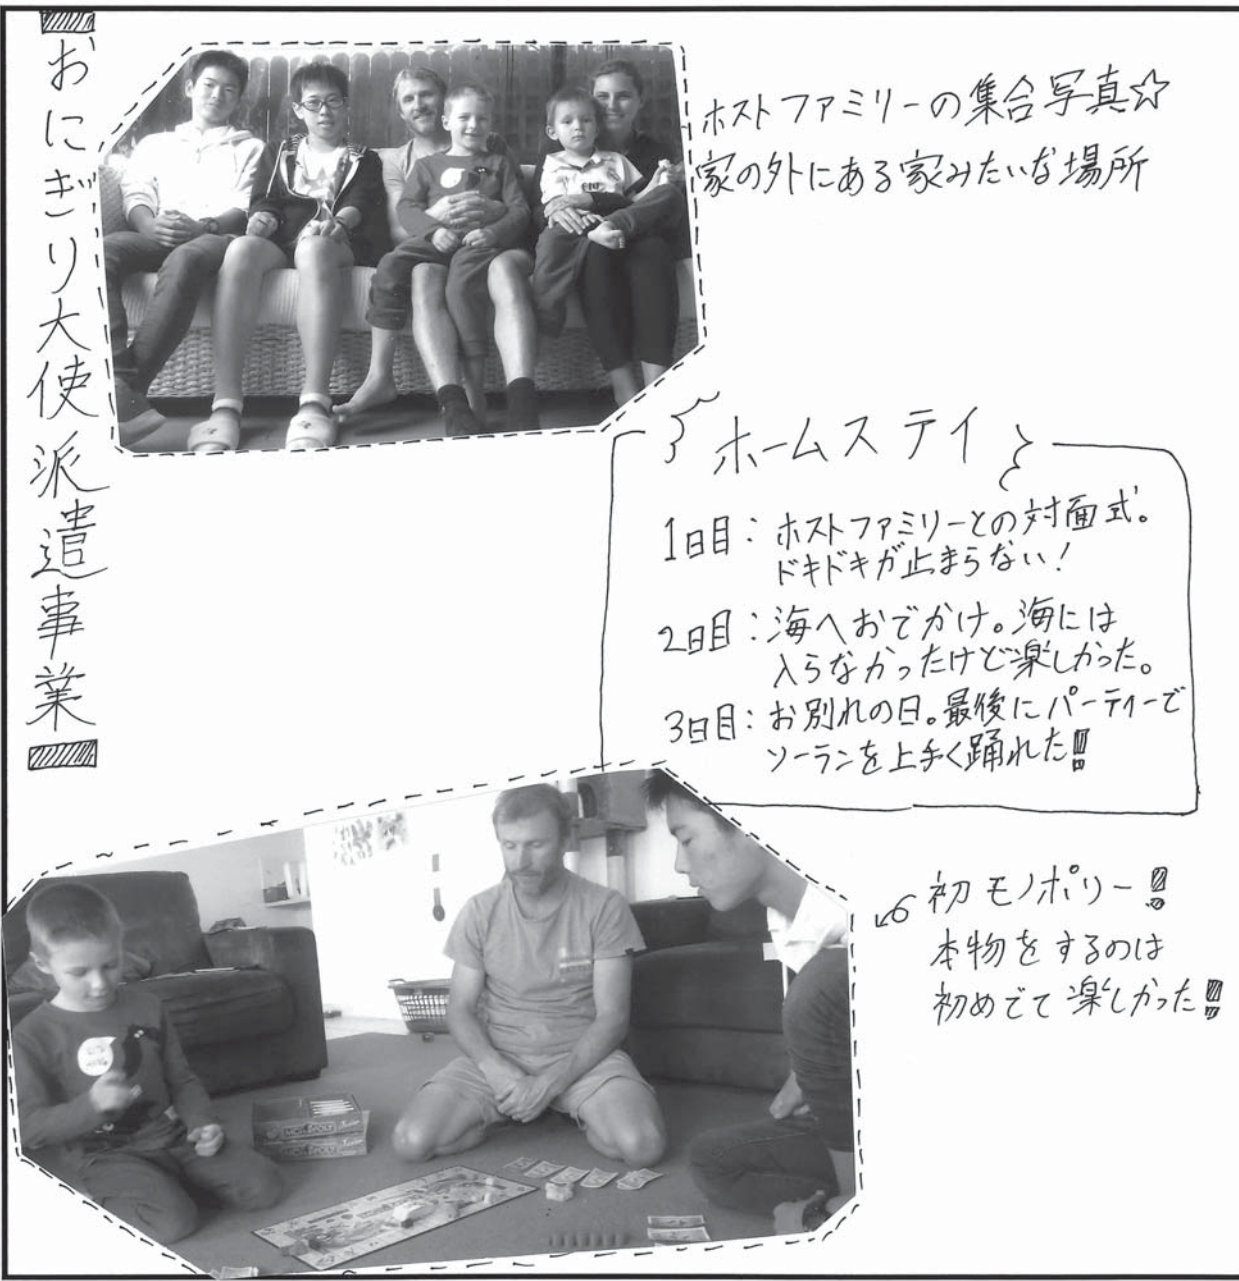 おにぎり大使派遣事業
ホストファミリーの集合写真☆
家の外にある家みたいな場所
ホームステイ
1日目：ホストファミリーとの対面式。
ドキドキが止まらない！
2日目：海へおでかけ。海には
入らなかったけど楽しかった。
3日目：お別れの日。最後にパーティーで
ソーランを上手く踊れた!!
初モノポリー!!
本物をするのは
初めてで楽しかった!!
MONOPOLY Junior